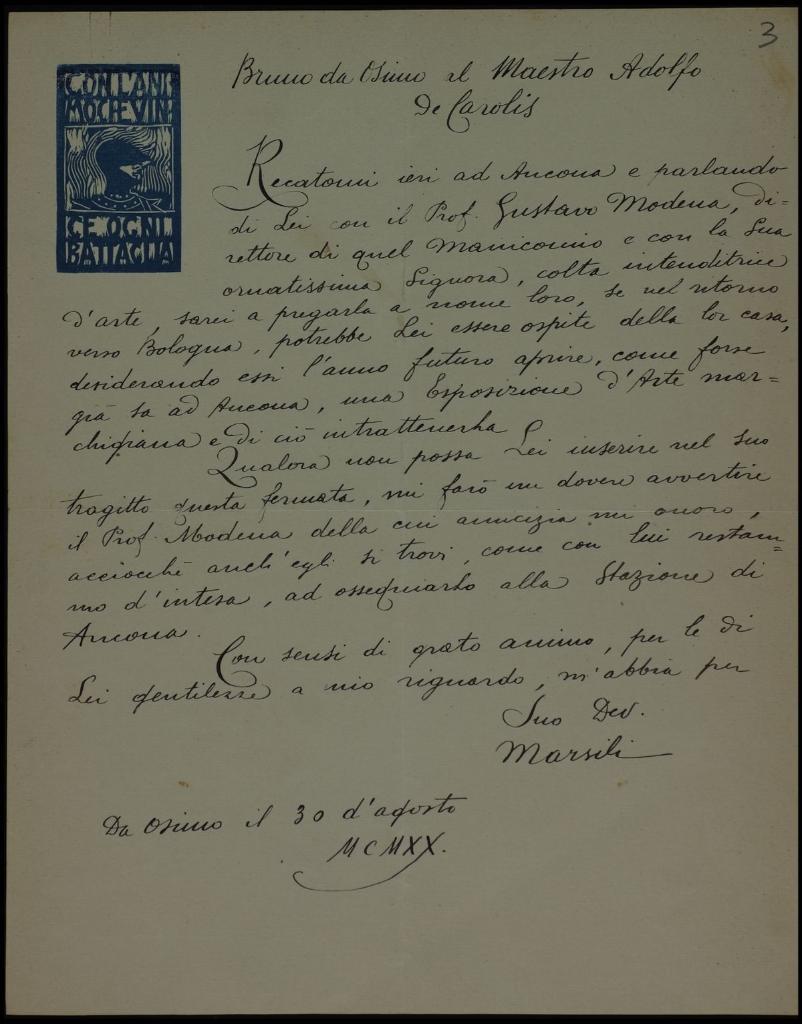 3
CON L'ANI
MO CHE VIN
CE OGNI
BATTAGLIA
Bruno da Osimo al Maestro Adolfo
De Carolis
Recatomi ieri ad Ancona e parlando
di Lei con il Prof. Gustavo Modena, di=
rettore di quel Manicomio e con la Sua
ornatissima Signora, colta intenditrice
d'arte, sarei a pregarla a nome loro, se nel ritorno
verso Bologna, potrebbe Lei essere ospite della lor casa,
desiderando essi l'anno futuro aprire, come forse
già sa ad Ancona, una Esposizione d'Arte mar=
chigiana e di ciò intrattenerla.
Qualora non possa Lei inserire nel suo
tragitto questa fermata, mi farò un dovere avvertire
il Prof. Modena della cui amicizia mi onoro,
acciocchè anch'egli si trovi, come con lui restam=
mo d'intesa, ad ossequiarlo alla Stazione di
Ancona.
Con sensi di grato animo, per le di
Lei gentilezze a mio riguardo, m'abbia per
Suo Dev.
Marsili
Da Osimo il 30 d'agosto
MCMXX.